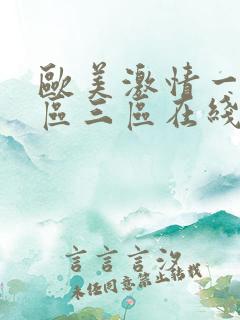 歐美激情一
區三區在綫
言言言没
未经同意禁止转载